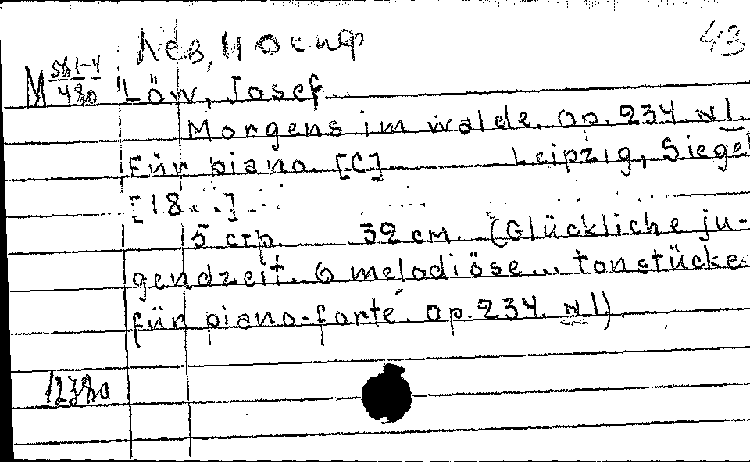 Лев, Иосиф 43
М 561-4/480 Löw, Josef
Morgens im walde. op. 234 N1.
Für piano. [C] Leipzig, Siegel
[18...]
5 стр. 32 см. (Glückliche ju-
gendzeit. 6 melodiöse... tonstücke
für piano-forte. op. 234. N1)